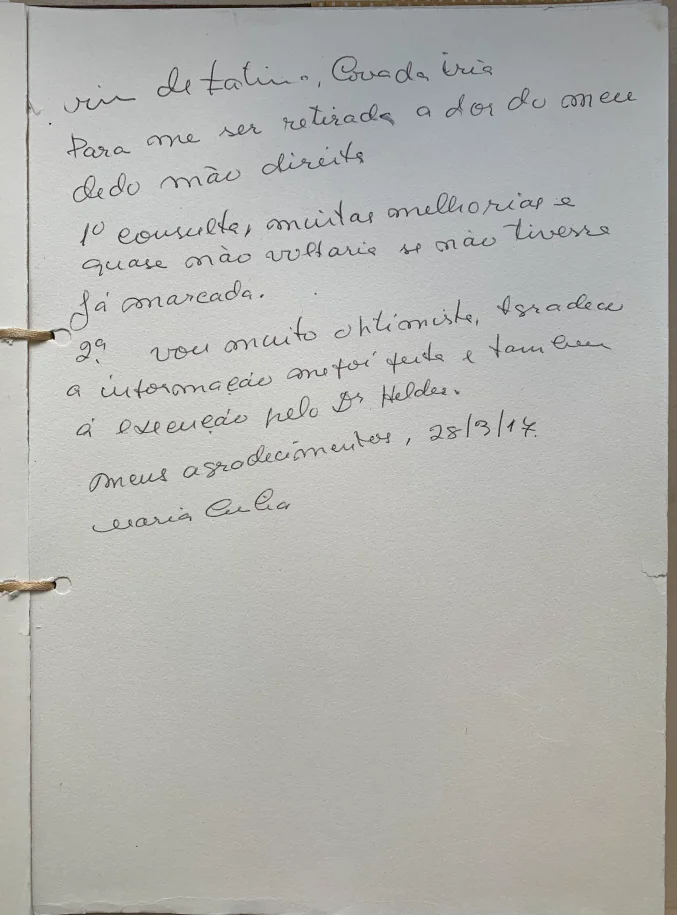 vim de Fatima, Cova da iria
Para me ser retirada a dor do meu
dedo mão direita
1º consulta, muitas melhorias e
quase não voltaria se não tivesse
Já marcada.
2ª. vou muito obtimista, Agradeco
a informação me foi feita e tambem
á execução pelo Dr Helder.
meus agradecimentos, 28/3/17.
Maria